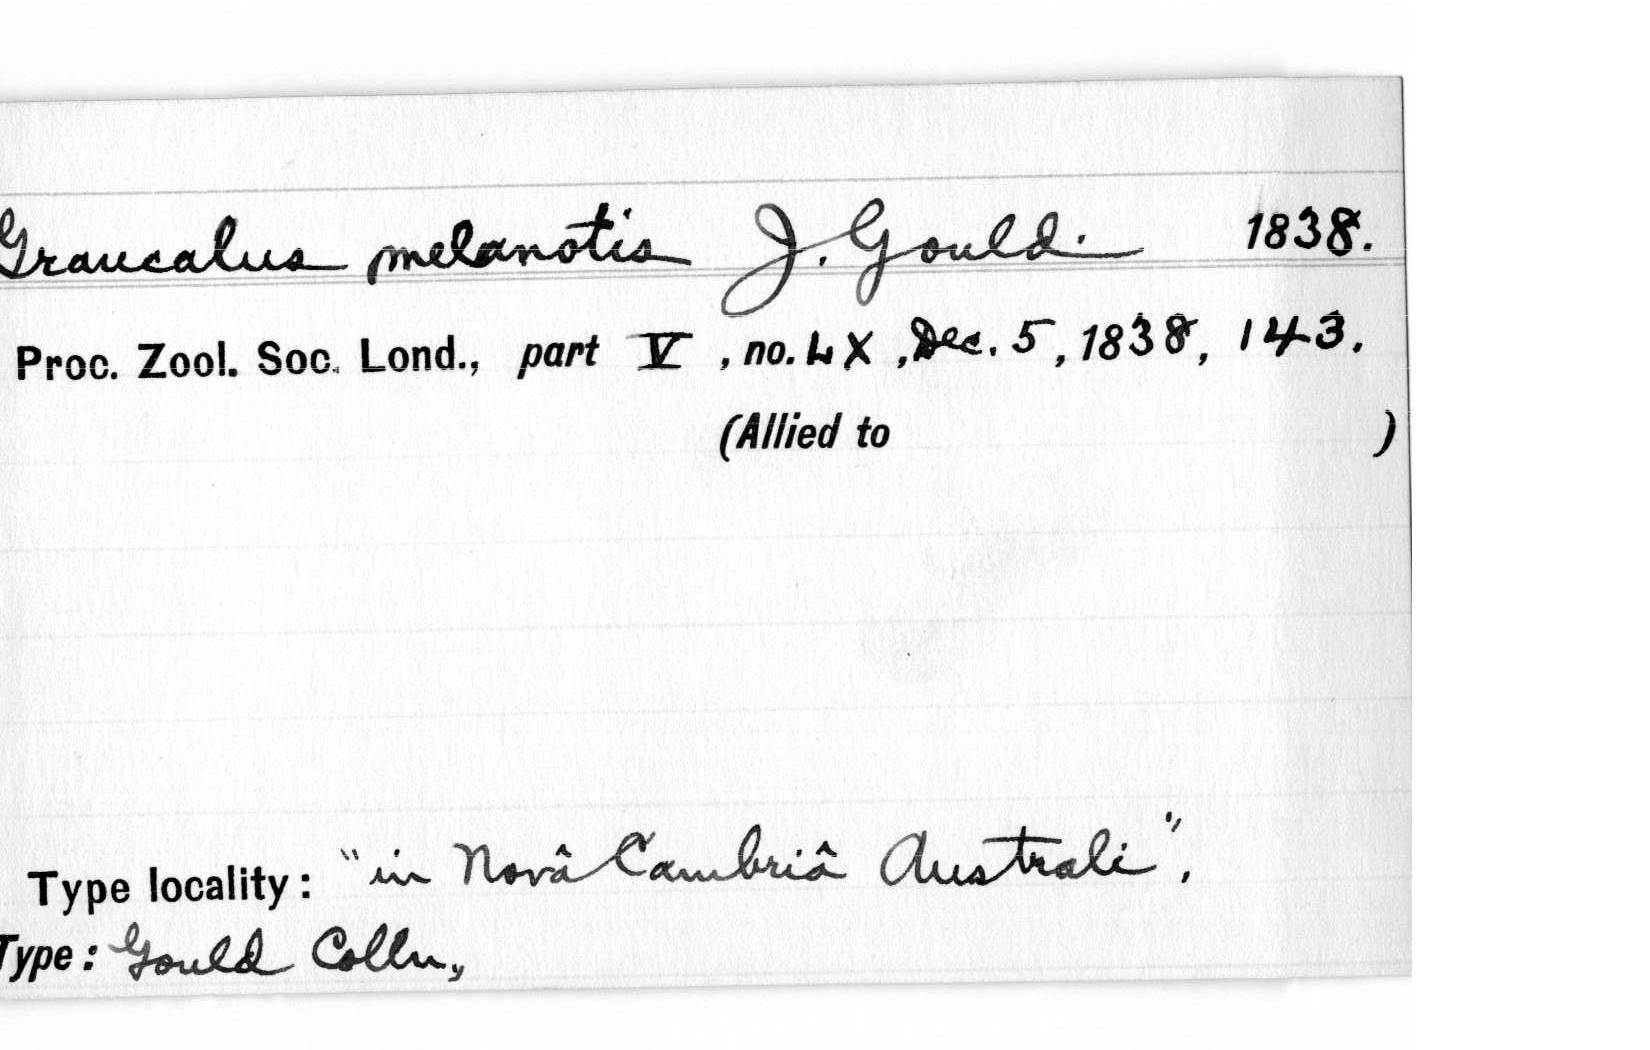 Graucalus melanotis J. Gould. 1838.
Proc. Zool. Soc. Lond., part V, no. LX, Dec. 5, 1838, 143.
(Allied to )
Type locality: "in Novâ Cambriâ Australi",
Type: Gould Colln,,